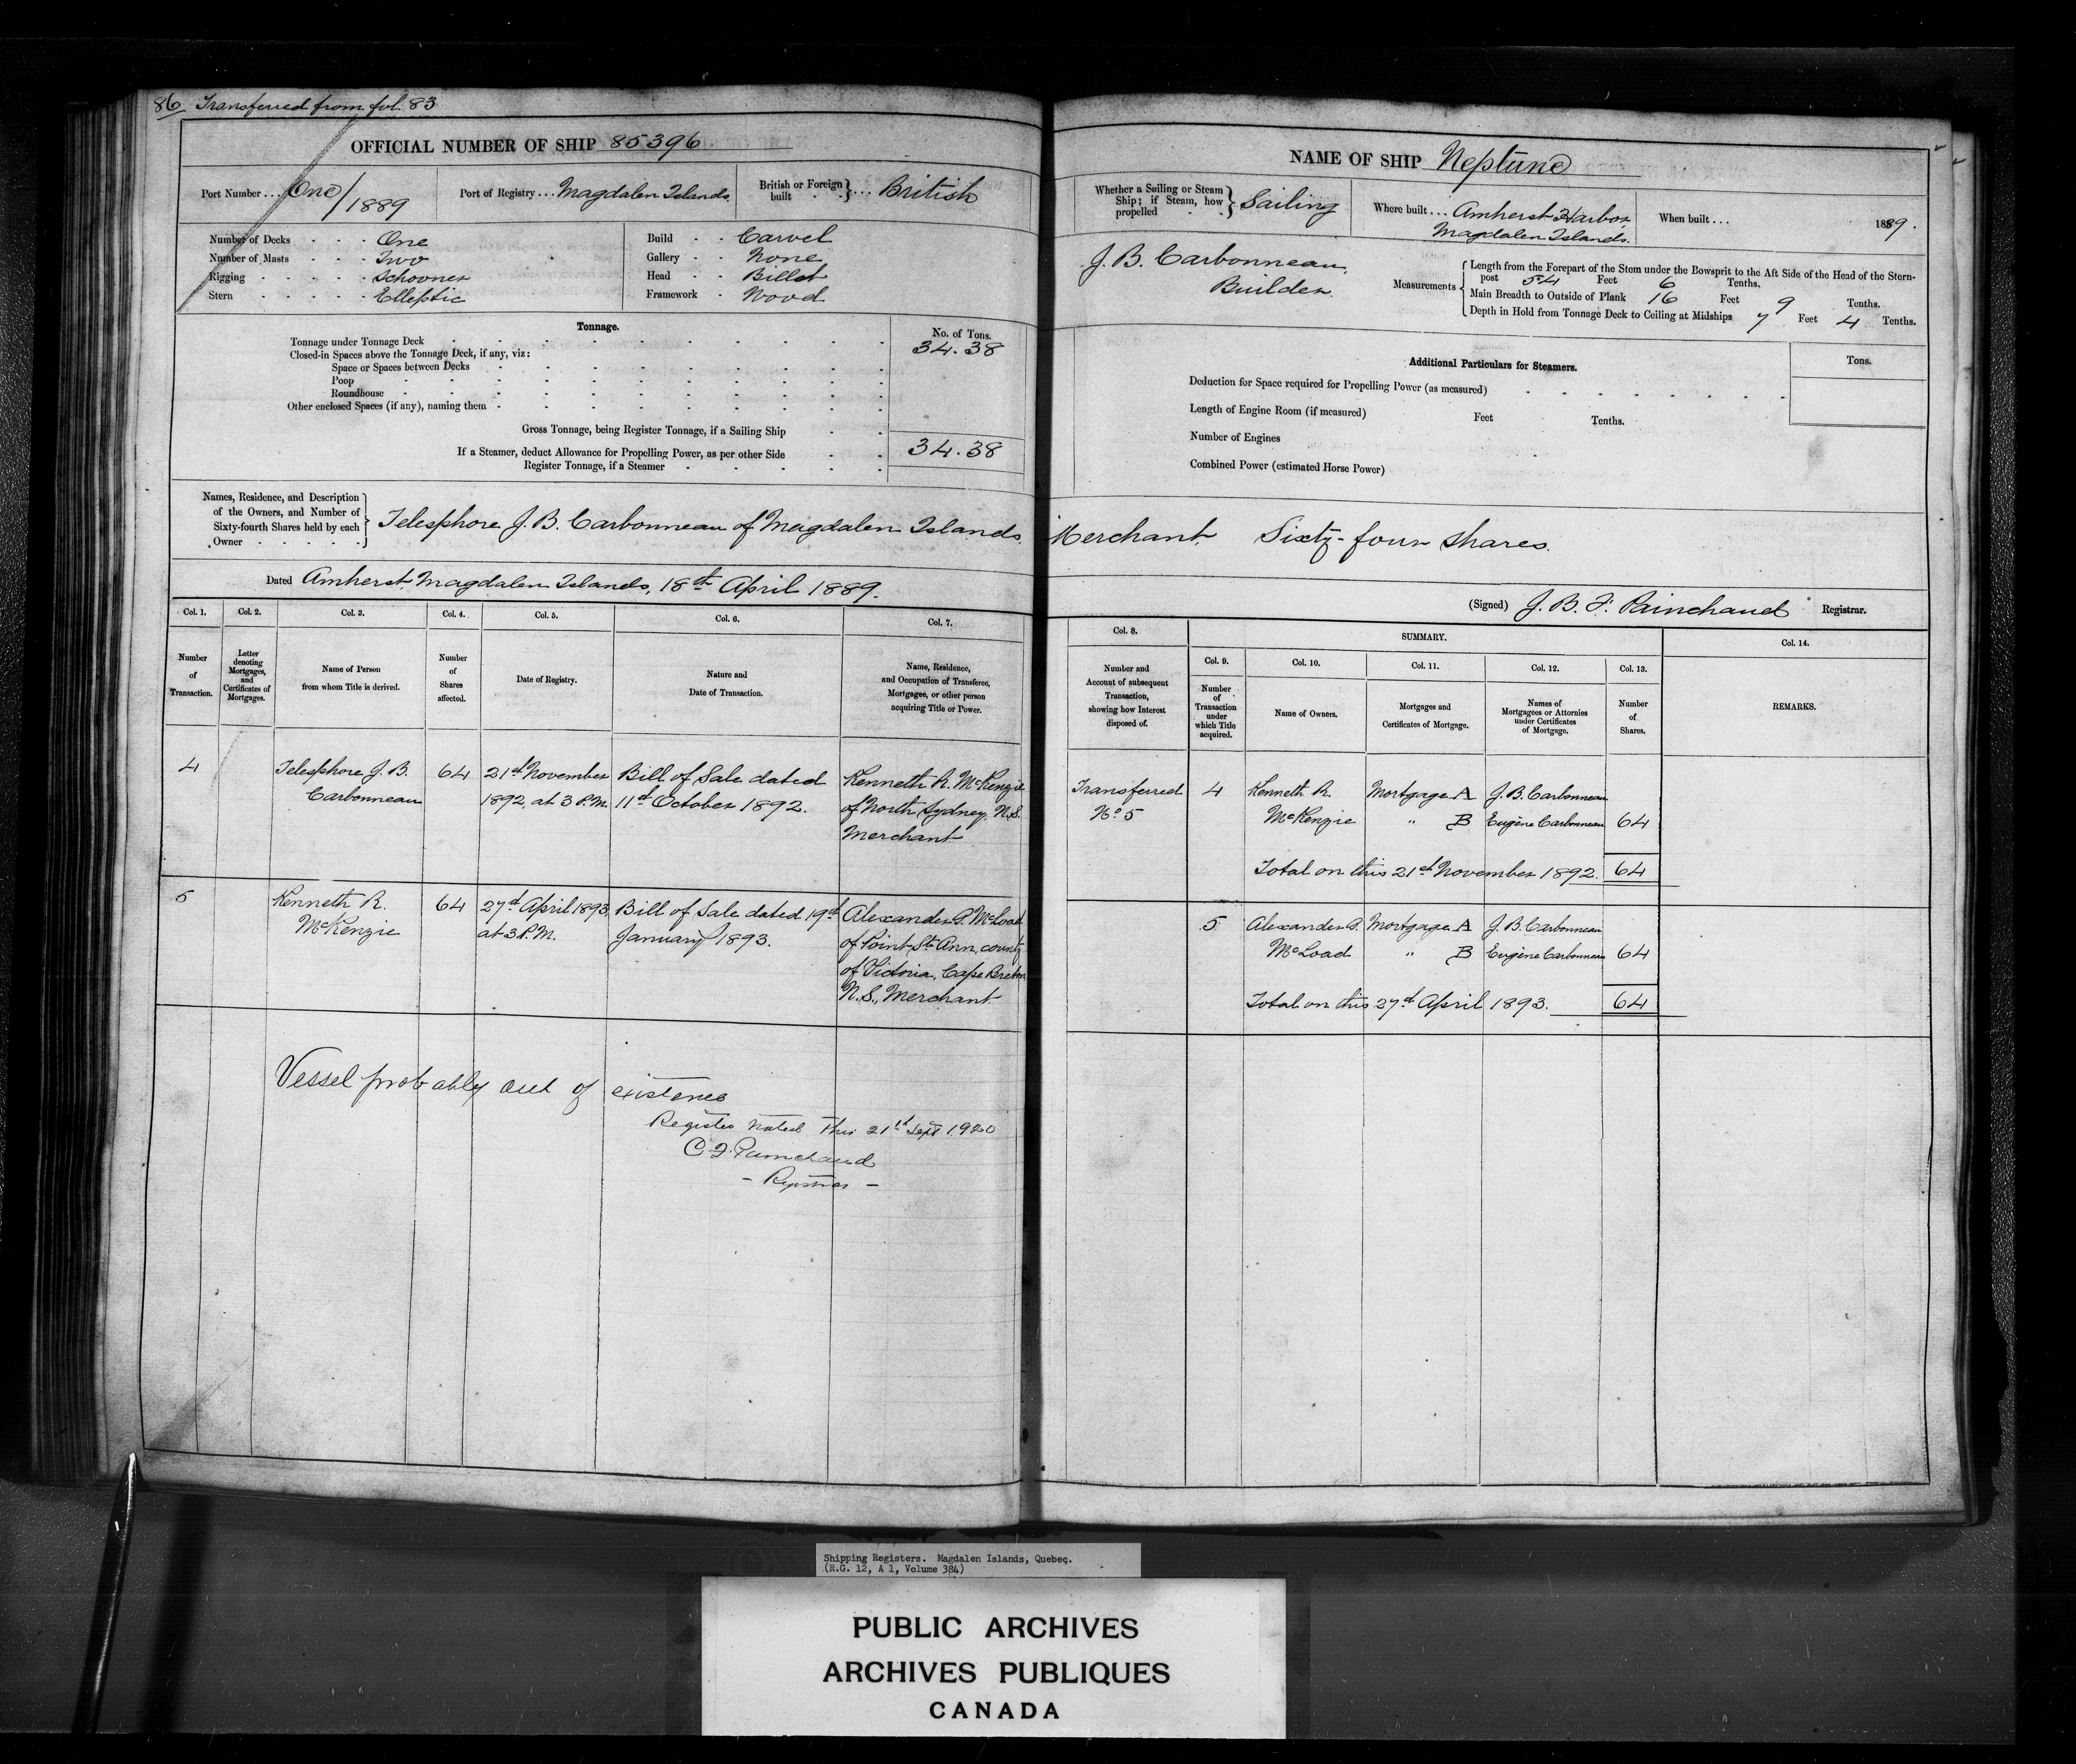 86 Transferred from fol. 83
OFFICIAL NUMBER OF SHIP 85396
Port Number ... One/1889
Port of Registry ... Magdalen Islands.
British or Foreign built } ... British
Number of Decks - - - One
Number of Masts - - - Two
Rigging - - - - - Schooner
Stern - - - - - Elleptic
Build - - Carvel
Gallery - - None
Head - - Billet
Framework - Wood
Tonnage.
No. of Tons.
Tonnage under Tonnage Deck 34.38
Closed-in Spaces above the Tonnage Deck, if any, viz:
Space or Spaces between Decks
Poop
Roundhouse
Other enclosed Spaces (if any), naming them
Gross Tonnage, being Register Tonnage, if a Sailing Ship 34.38
If a Steamer, deduct Allowance for Propelling Power, as per other Side
Register Tonnage, if a Steamer
Names, Residence, and Description
of the Owners, and Number of
Sixty-fourth Shares held by each
Owner
Telesphore J. B. Carbonneau of Magdalen Islands,
Dated Amherst, Magdalen Islands, 18th April 1889.
Col. 1.
Number of Transaction.
Col. 2.
Letter denoting Mortgages, and Certificates of Mortgages.
Col. 3.
Name of Person from whom Title is derived.
Col. 4.
Number of Shares affected.
Col. 5.
Date of Registry.
Col. 6.
Nature and Date of Transaction.
Col. 7.
Name, Residence, and Occupation of Transferee, Mortgagee, or other person acquiring Title or Power.
4
Telesphore J. B.
Carbonneau
64
21st November
1892, at 3 P.M.
Bill of Sale dated
11th October 1892.
Kenneth R. McKenzie
of North Sydney, N.S.
Merchant
5
Kenneth R.
McKenzie
64
27th April 1893,
at 3 P.M.
Bill of Sale dated 19th
January 1893.
Alexander S. McLoad
of Point St. Ann, county
of Victoria, Cape Breton,
N.S., Merchant
Vessel probably out of existence
Register noted this 21st Sept 1920
C F. Painchaud
- Registrar -
NAME OF SHIP Neptune
Whether a Sailing or Steam
Ship; if Steam, how
propelled
Sailing
Where built ... Amherst Harbor,
Magdalen Islands.
When built ... 1889.
J. B. Carbonneau,
Builder.
Measurements
Length from the Forepart of the Stem under the Bowsprit to the Aft Side of the Head of the Stern-
post 54 Feet 6 Tenths.
Main Breadth to Outside of Plank 16 Feet 9 Tenths.
Depth in Hold from Tonnage Deck to Ceiling at Midships 7 Feet 4 Tenths.
Additional Particulars for Steamers.
Tons.
Deduction for Space required for Propelling Power (as measured)
Length of Engine Room (if measured) Feet Tenths.
Number of Engines
Combined Power (estimated Horse Power)
Merchant Sixty-four shares.
(Signed) J. B. F. Painchaud Registrar.
Col. 8.
Number and Account of subsequent Transaction, showing how Interest disposed of.
SUMMARY.
Col. 9.
Number of Transaction under which Title acquired.
Col. 10.
Name of Owners.
Col. 11.
Mortgages and Certificates of Mortgage.
Col. 12.
Names of Mortgagees or Attornies under Certificates of Mortgage.
Col. 13.
Number of Shares.
Col. 14.
REMARKS.
Transferred
No. 5
4
Kenneth R.
McKenzie
Mortgage A
" B
J. B. Carbonneau
Eugène Carbonneau
64
Total on this 21st November 1892. 64
5
Alexander S.
McLoad
Mortgage A
" B
J. B. Carbonneau
Eugène Carbonneau
64
Total on this 27th April 1893. 64
Shipping Registers. Magdalen Islands, Quebec.
(R.G. 12, A 1, Volume 384)
PUBLIC ARCHIVES
ARCHIVES PUBLIQUES
CANADA